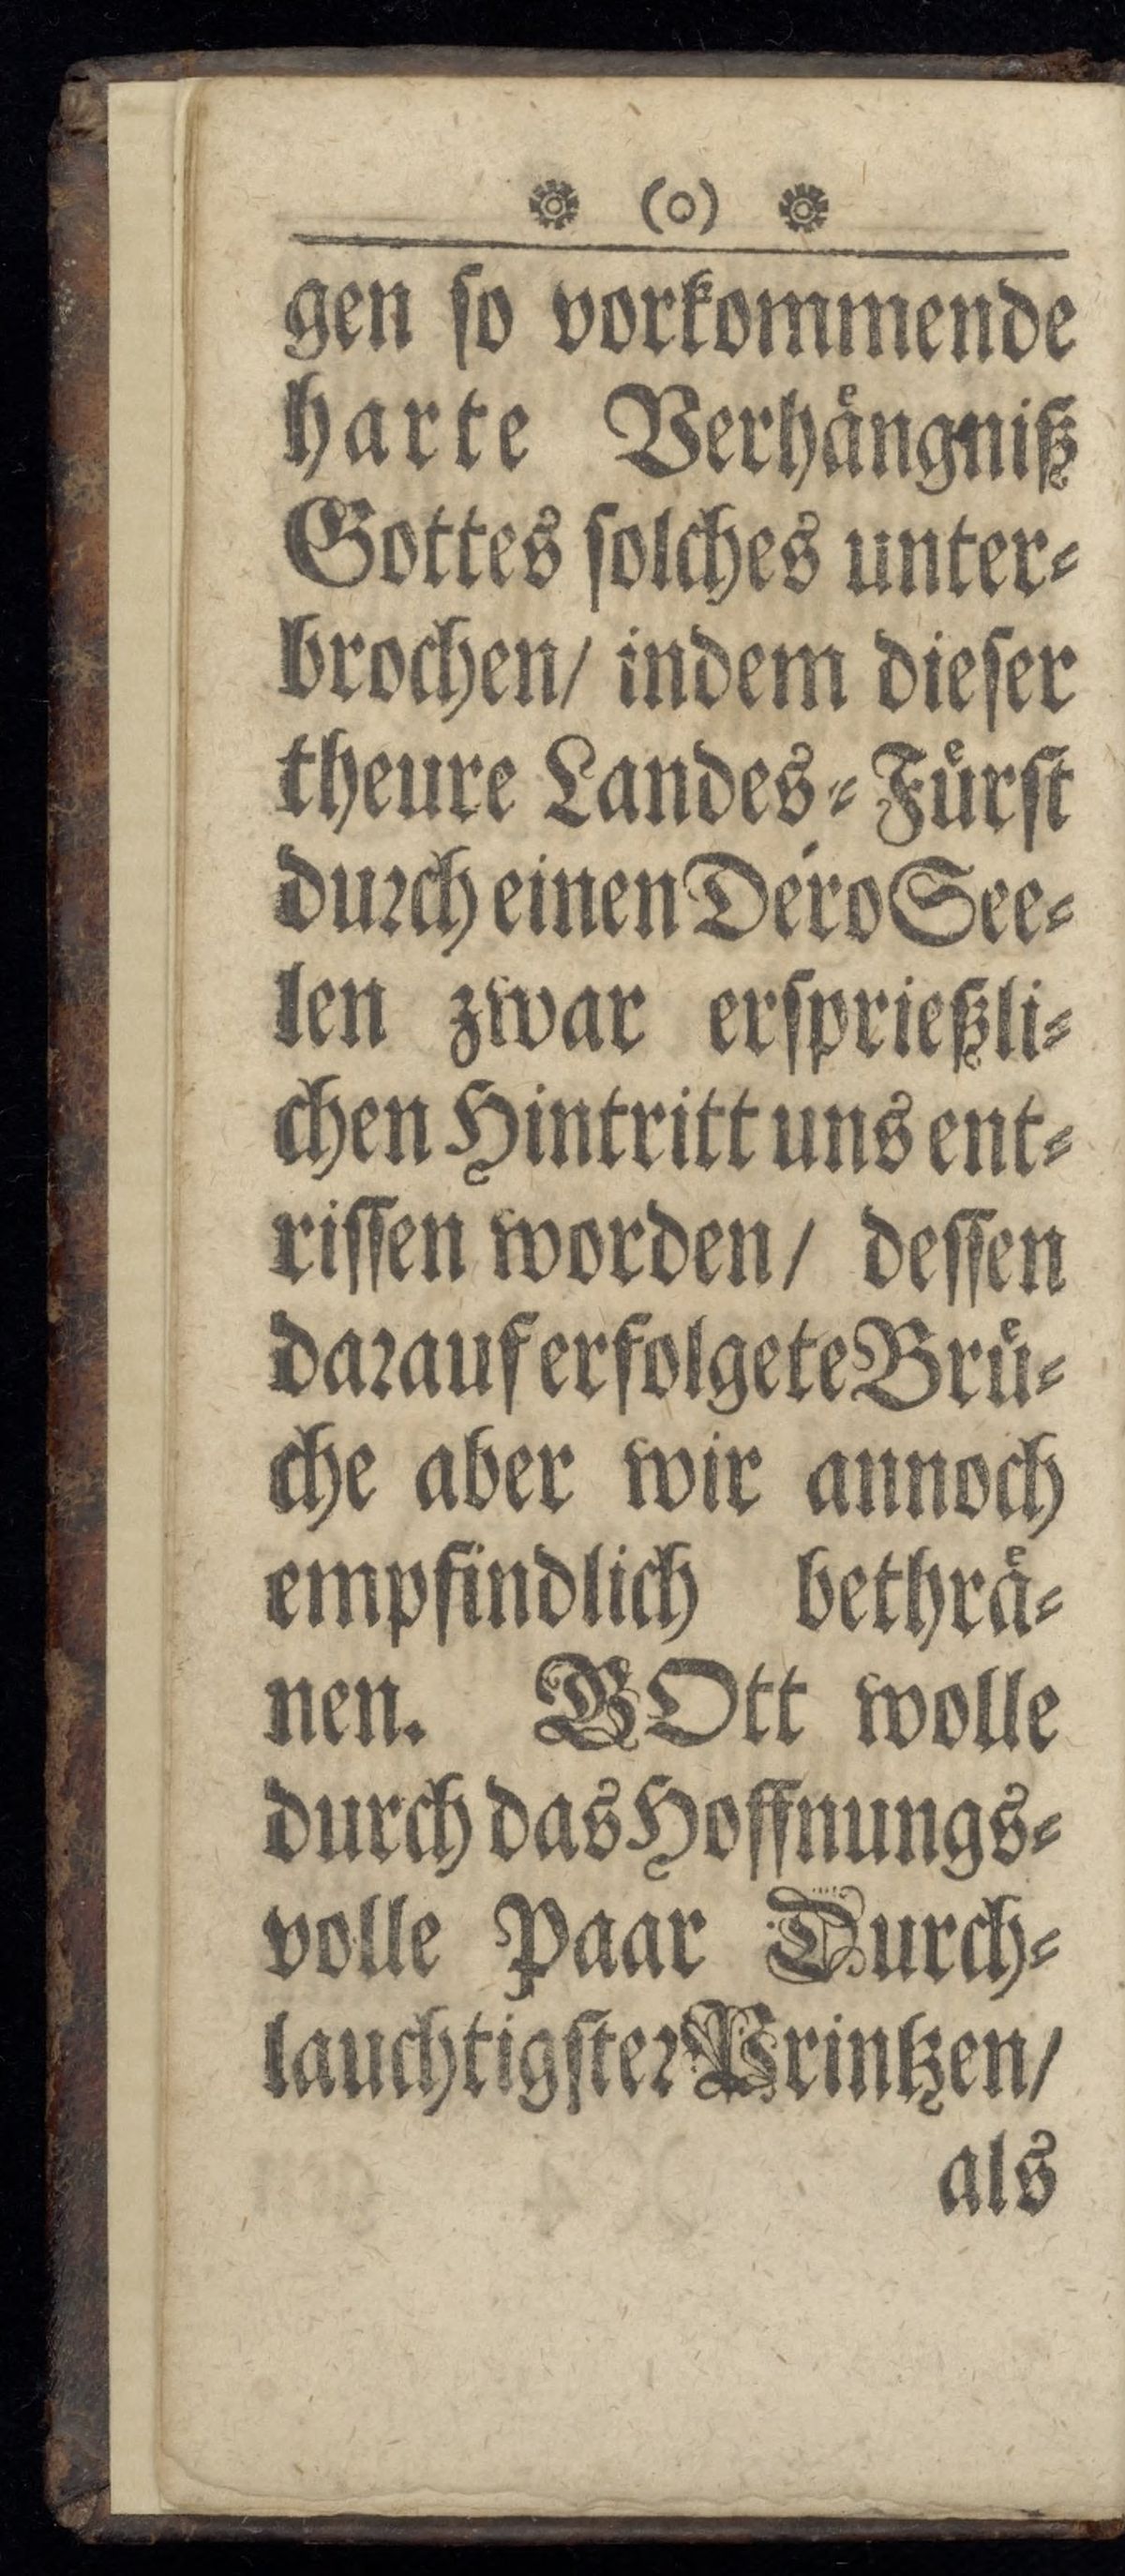 ❁ (o) ❁
gen ſo vorkommende
harte Verhaͤngniß
Gottes ſolches unter⸗
brochen/ indem dieſer
theure Landes⸗Fuͤrſt
duꝛch einen Déro See⸗
len zwar erſprießli⸗
chen Hintritt uns ent⸗
riſſen worden/ deſſen
daꝛauf erfolgete Bruͤ⸗
che aber wir annoch
empfindlich bethraͤ⸗
nen. GOtt wolle
durch das Hoffnungs⸗
volle Paar Durch⸗
lauchtigſteꝛ Printzen/
als